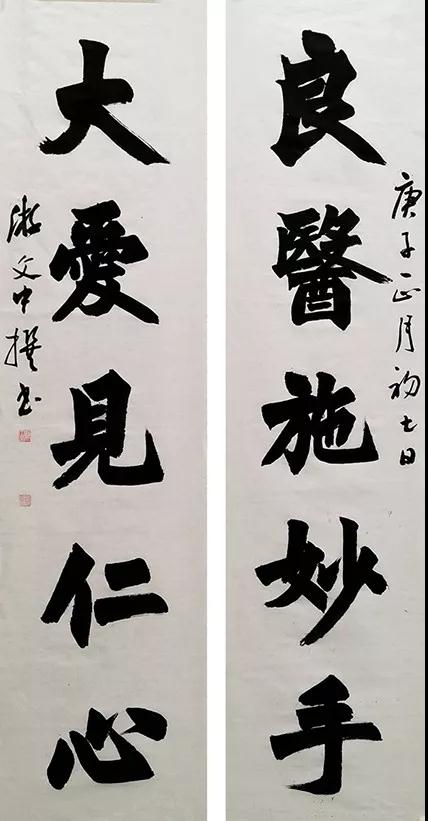 良醫施妙手
庚子正月初七日
大愛見仁心
游文中撰书